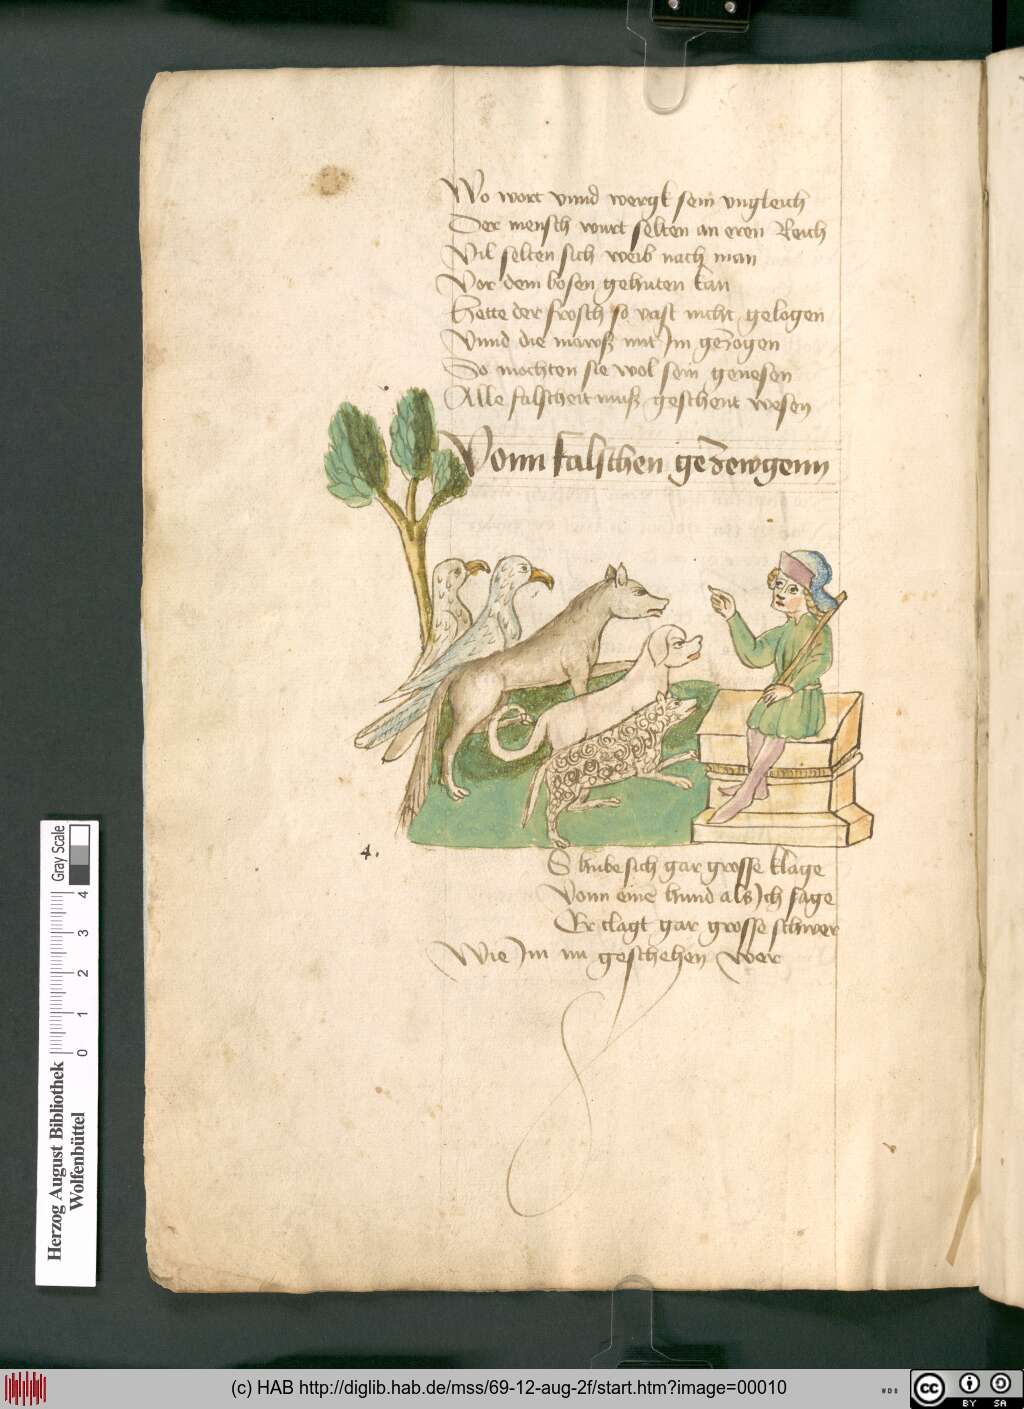 Wo wort vnnd wergk sein vngleich
Der mensch wurt selten an eren Reich
Vil selten sich weib nach man
Vor dem bosen gehuten kan
Hette der frosch so vast nicht gelogen
Vnnd die mawß mit Jm gezogen
So mochten sie wol sein genesen
Alle falscheit muß geschent wesen
Vonn falschen gezewgenn
4.
S hube sich gar grosse klage
Vonn eine hund als Jch sage
Er clagt gar grosse schwer
Wie Jm im geschehen wer
Herzog August Bibliothek
Wolfenbüttel
Gray Scale
0 1 2 3 4
(c) HAB http://diglib.hab.de/mss/69-12-aug-2f/start.htm?image=00010
WDB
cc BY SA